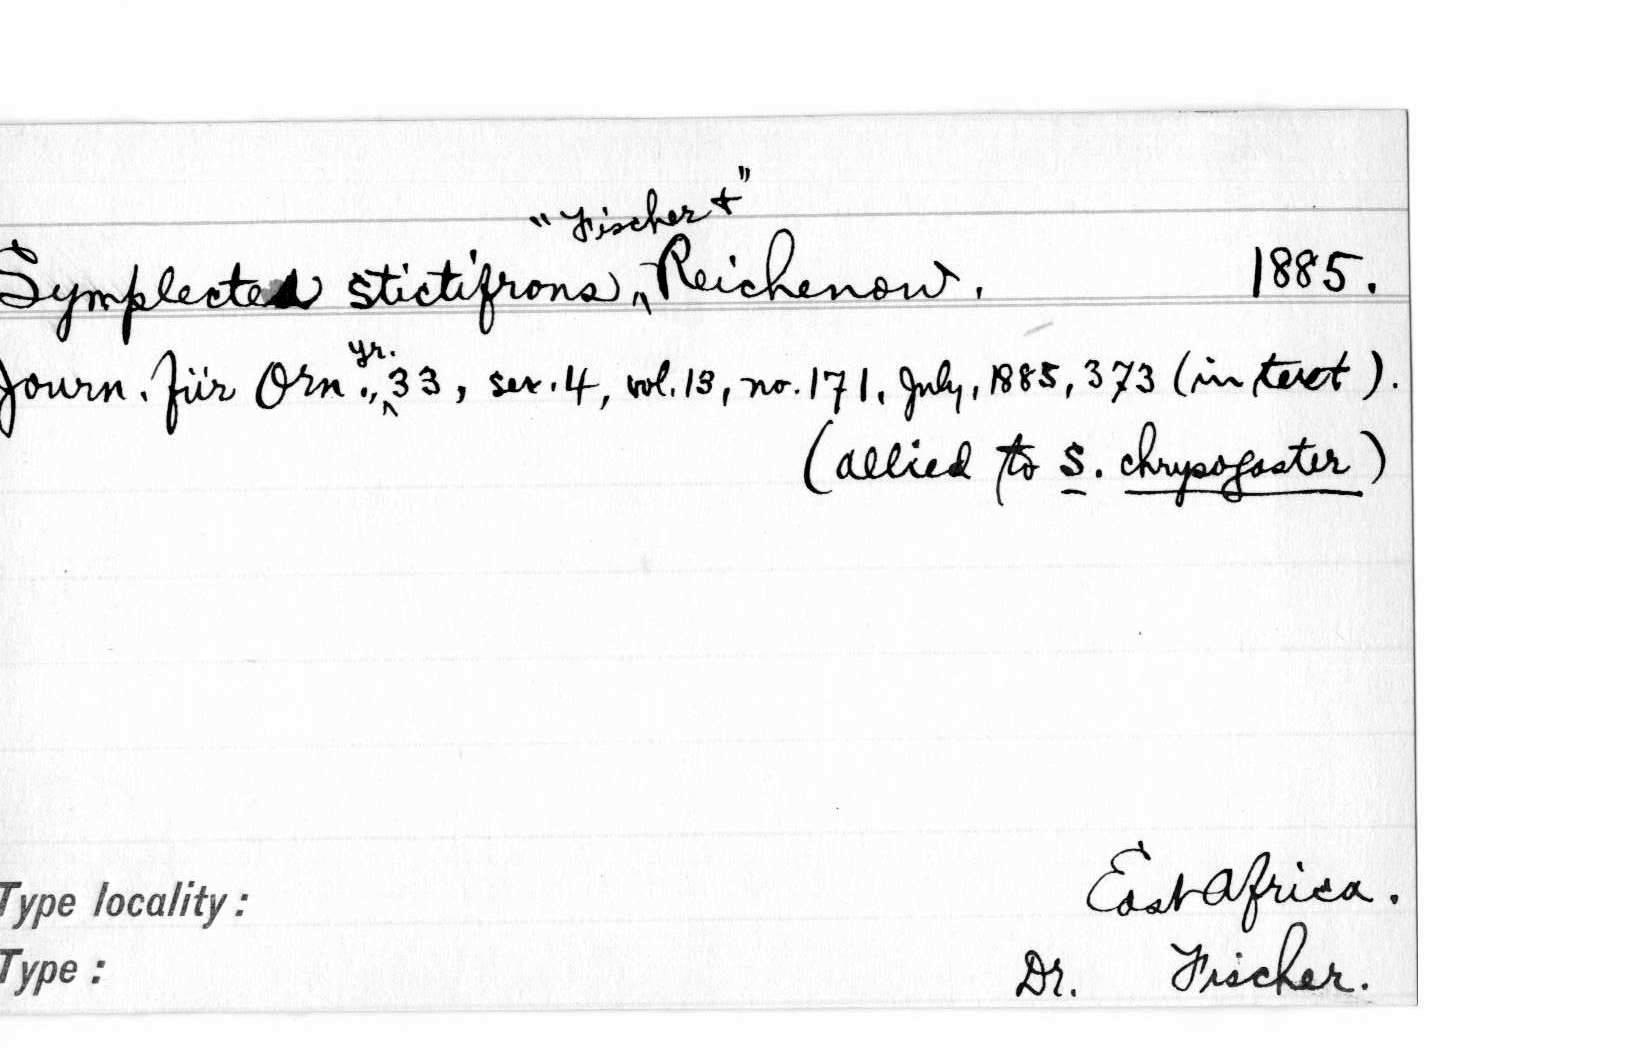 "Fischer +"
Symplectes stictifrons, Reichenow. 1885.
yr.
Journ. für Orn., 33, ser. 4, vol. 13, no. 171, July, 1885, 373 (in text).
(allied to S. chrysogaster)
Type locality: East Africa.
Type: Dr. Fischer.